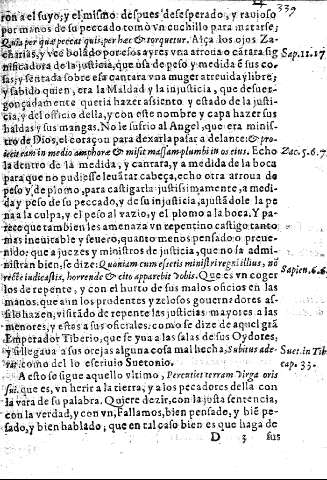 339
ron a el suyo, y el mismo despues desesperado, y rauioso
por manos de su peccado tomò vn cuchillo para matarse;
Quia per quæ peccat quis, per hæc & torquetur. Alça los ojos Za-
Sap. 11. 17
charias, y vee bolado por esos ayres vna arroua o cãtara sig
nificadora de la justicia, que vsa de peso y medida è sus co-
sas, y sentada sobre esa cantara vna muger atreuida y libre;
y sabido quien, era la Maldad y la injusticia, que desuer-
gonçadamente queria hazer assiento y estado de la justi-
cia, y del officio della, y con este nombre y capa hazer sus
haldas y sus mangas. No le sufrio al Angel, que era minis-
tro de Dios, el coraçon para dexarla passar adelante: & pro-
iecit eam in medio amphoræ & misit massam plumbi in os eius. Echo
Zac. 5. 6. 7.
la dentro de la medida, y cantara, y a medida de la boca
para que no pudiesse leuãtar cabeça, echo otra arroua de
peso y de plomo, para castigarla justissimamente, a medi-
da y peso de su peccado, y de su injusticia, ajustãdole la pe
na a la culpa, y el peso al vazio, y el plomo a la boca. Y pa-
rece que tambien les amenaza vn repentino castigo tanto
mas ineuitable y seuero, quanto menos pensado o preue-
nido; que a juezes y ministros de justicia, que no la admi-
nistràn bien, se dize: Quoniam cum essetis ministri regni illius, nõ
rectè iudicastis, horrendè & citò apparebit vobis. Que es vn coger
Sapien. 6. 6.
los de repente, y con el hurto de sus malos oficios en las
manos, que aun los prudentes y zelosos gouernadores as-
si lo hazen, visitãdo de repente las justicias mayores a las
menores, y estas a sus oficiales, como se dize de aquel grã
Emperador Tiberio, que se yua a las salas de Sus Oydores,
y si llegaua a sus orejas alguna cosa mal hecha, Subitus ade-
Suet. in Tib
rat: como del lo escriuio Suetonio.
cap. 33.
A esto se sigue aquello vltimo, Percutiet terram virga oris
sui. que es, vn herir a la tierra, y a los peccadores della con
la vara de su palabra. Quiere dezir, con la justa sentencia,
con la verdad, y con vn, Fallamos, bien pensado, y biẽ pe-
sado, y bien hablado; que en tal caso bien es que haga de
D 3 sus